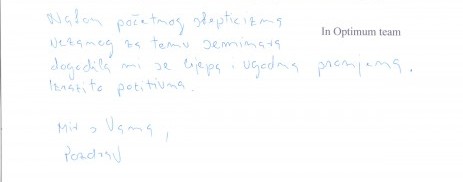 Nakon početnog skepticizma
vezanog za temu seminara
dogodila mi se lijepa i ugodna promjena.
Izrazito pozitivna.
Mir s Vama,
Pozdrav
In Optimum team